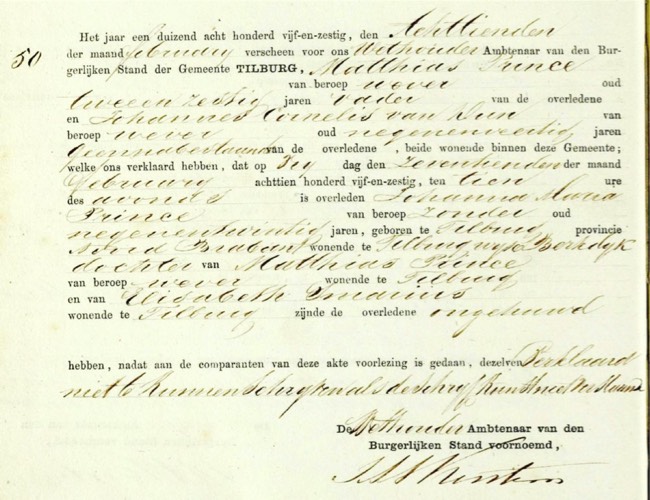 50
Het jaar een duizend acht honderd vijf-en-zestig, den Achttienden
der maand februarij verscheen voor ons Wethouder Ambtenaar van den Bur-
gerlijken Stand der Gemeente TILBURG, Matthias Prince
van beroep wever oud
tweeenzestig jaren vader van de overledene
en Johannes Cornelis van Dun van
beroep wever oud negenenveertig jaren
geen nabestaande van de overledene , beide wonende binnen deze Gemeente;
welke ons verklaard hebben, dat op Vry dag den Zeventienden der maand
February achttien honderd vijf-en-zestig, ten tien ure
des avonds is overleden Johanna Maria
Prince van beroep zonder oud
negenentwintig jaren, geboren te Tilburg provincie
Noord Braband wonende te Tilburg wyk Berkdyk
dochter van Matthias Prince
van beroep wever wonende te Tilburg
en van Elisabeth Smarius
wonende te Tilburg zijnde de overledene ongehuwd
hebben, nadat aan de comparanten van deze akte voorlezing is gedaan, dezelven Verklaard
niet te kunnen schryven als de schryfkunst niet verstaande
De Wethouder Ambtenaar van den
Burgerlijken Stand voornoemd,